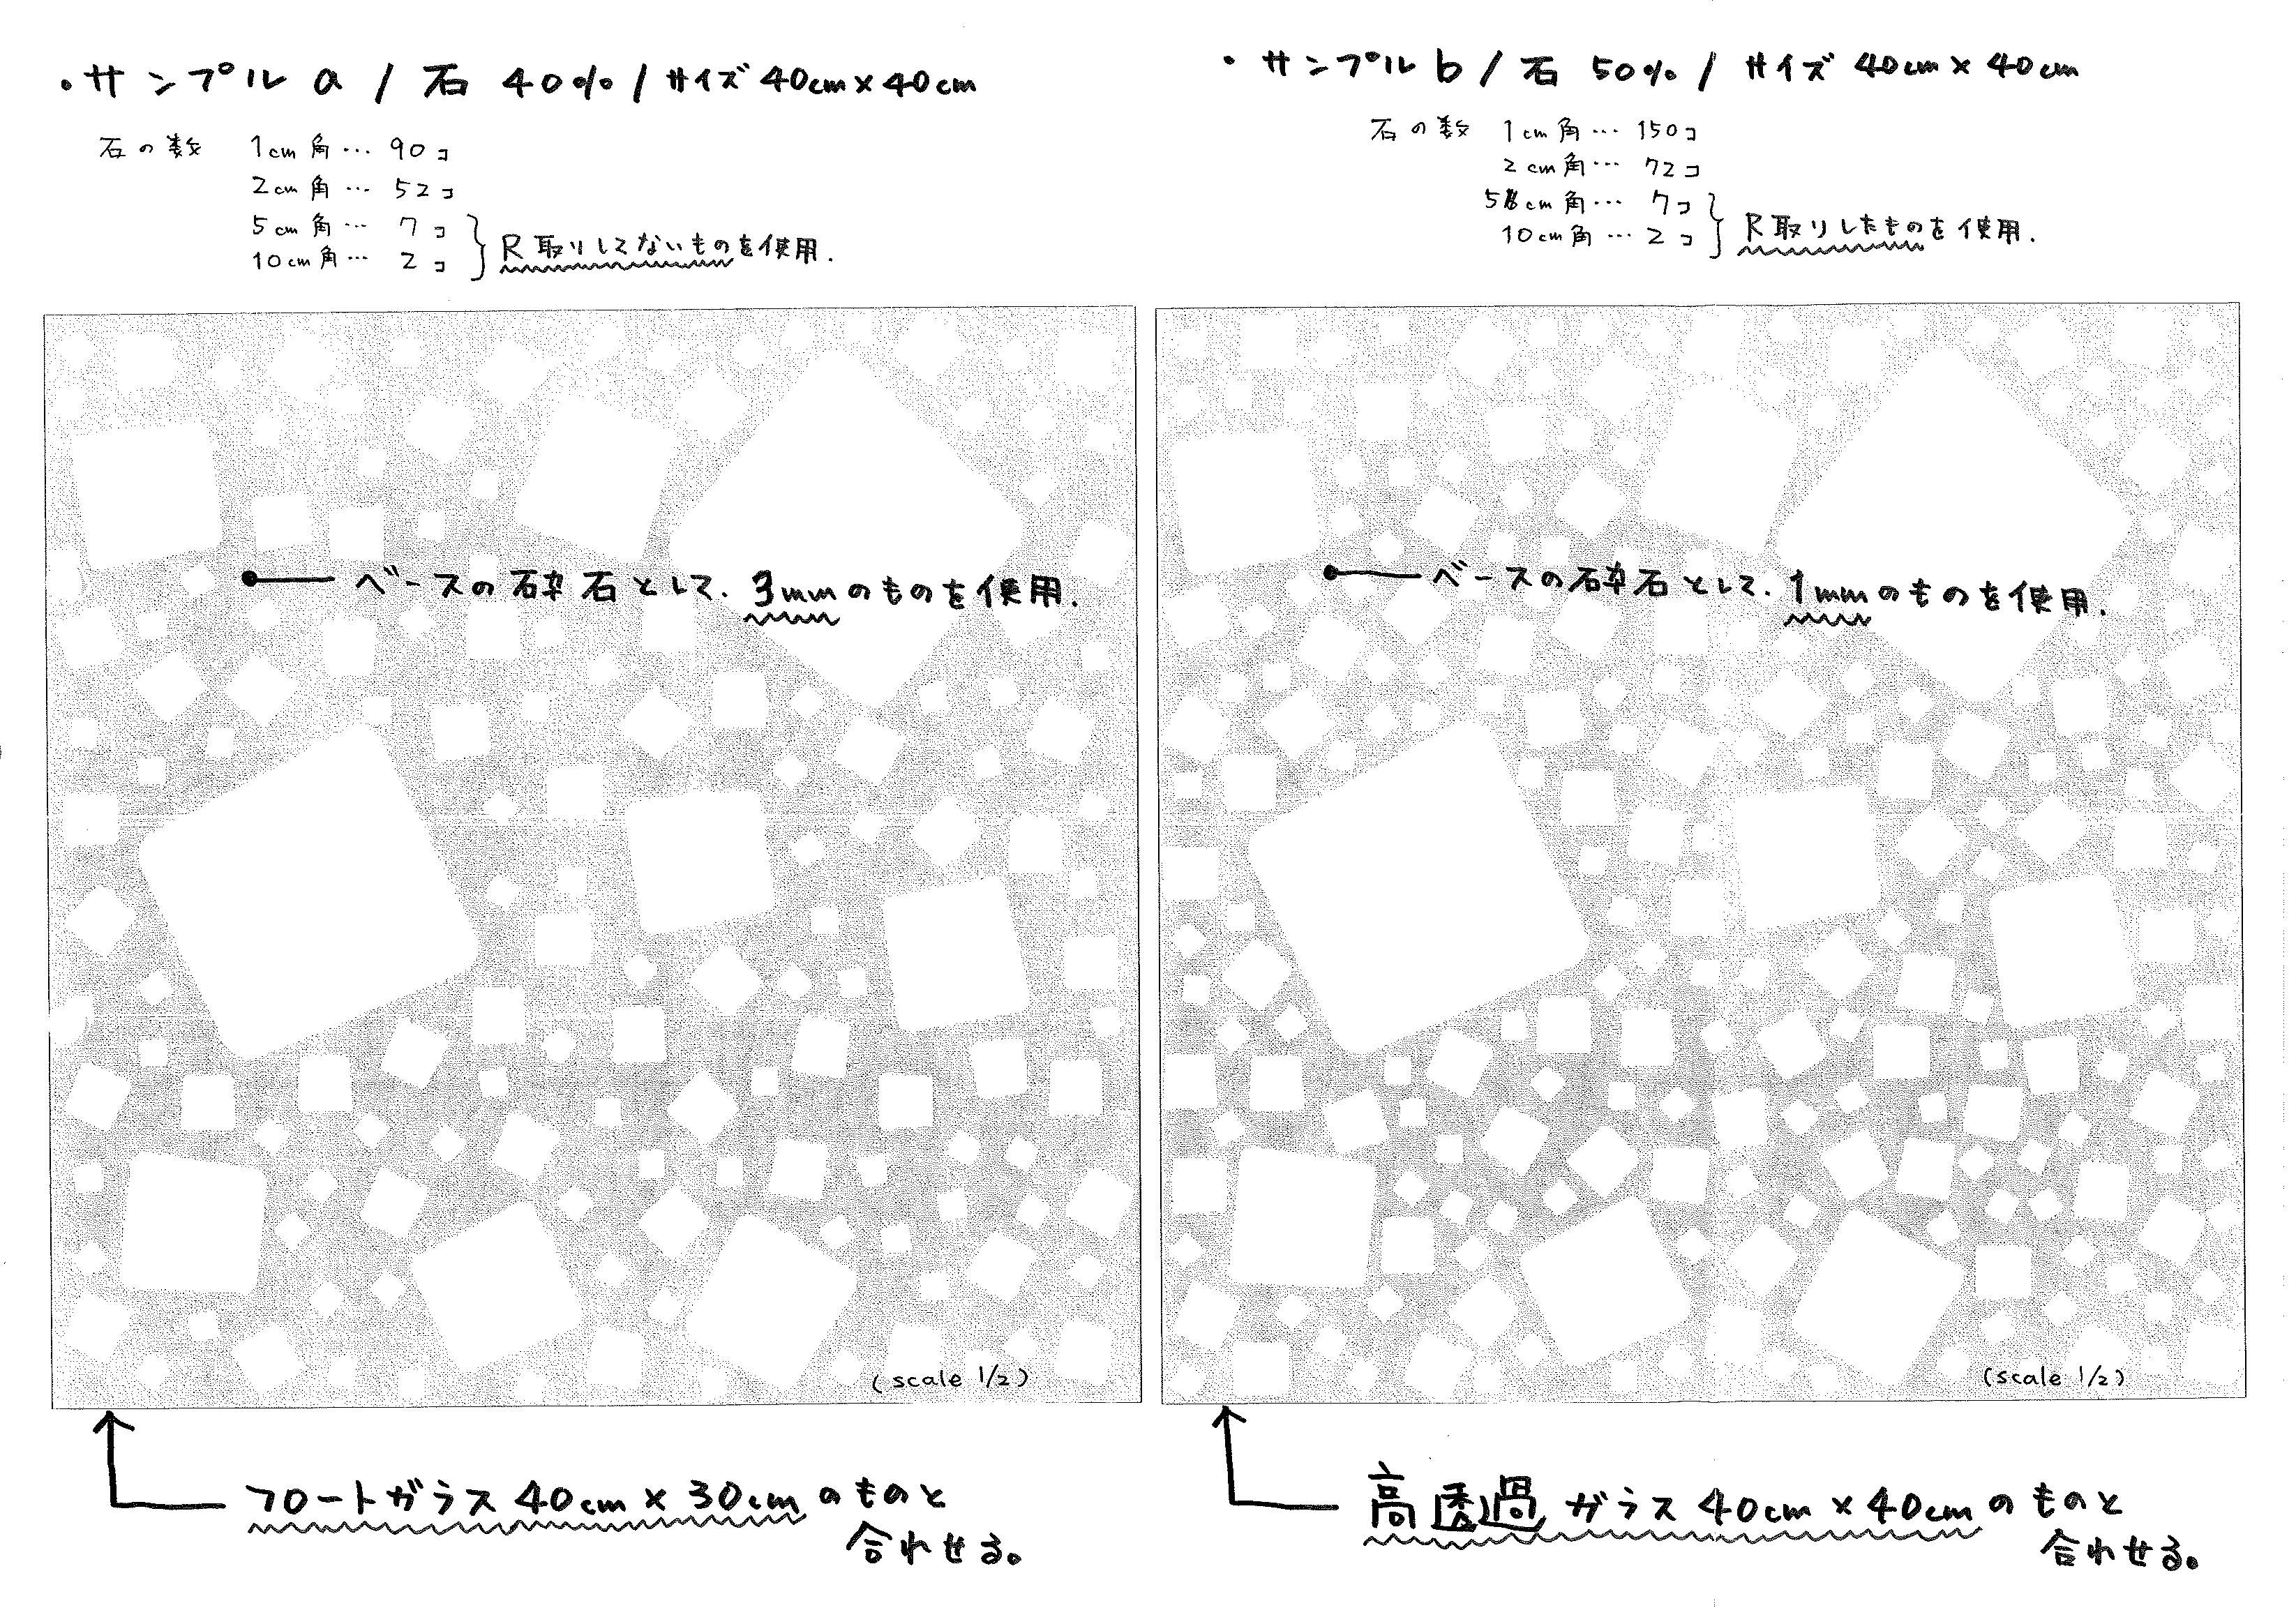 ・サンプル a / 石 40% / サイズ 40cm×40cm
石の数 1cm角… 90コ
2cm角… 52コ
5cm角… 7コ
10cm角… 2コ
R取りしてないものを使用.
・サンプル b / 石 50% / サイズ 40cm×40cm
石の数 1cm角… 150コ
2cm角… 72コ
5cm角… 7コ
10cm角… 2コ
R取りしたものを使用.
ベースの砕石として. 3mmのものを使用.
(scale 1/2)
フロートガラス 40cm×30cmのものと
合わせる。
ベースの砕石として. 1mmのものを使用.
(scale 1/2)
高透過ガラス 40cm×40cmのものと
合わせる。